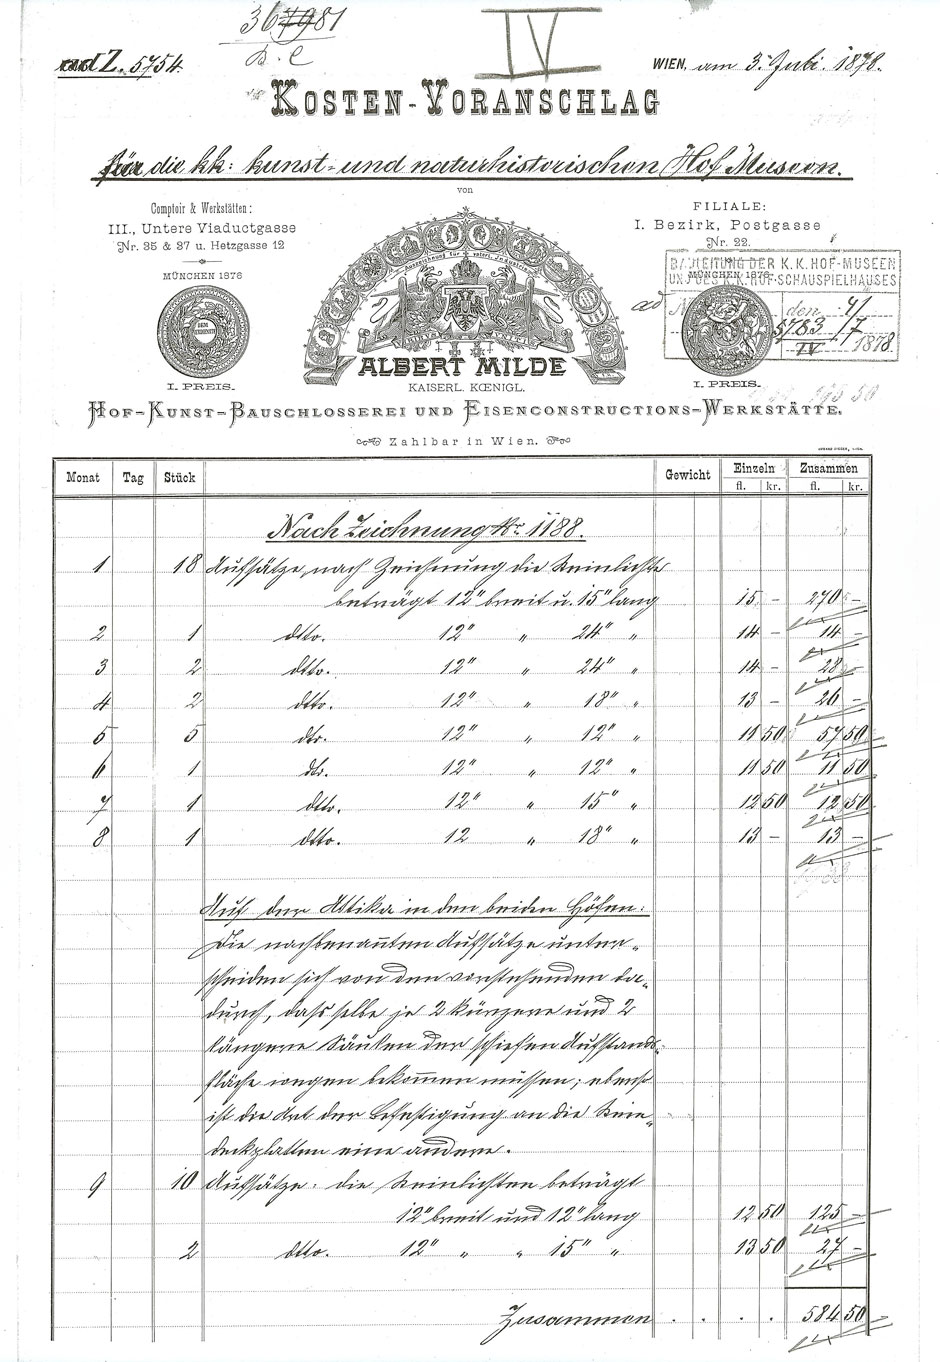 367981
ad Z. 5754.
IV
WIEN, am 3. Juli. 1878.
KOSTEN-VORANSCHLAG
für die kk: kunst- und naturhistorischen Hof Museen.
von
Comptoir & Werkstätten:
III., Untere Viaductgasse
Nr. 35 & 37 u. Hetzgasse 12
MÜNCHEN 1876
I. PREIS.
FILIALE:
I. Bezirk, Postgasse
Nr. 22.
BAULEITUNG DER K.K. HOF-MUSEEN
UND DES K.K. HOF-SCHAUSPIELHAUSES
MÜNCHEN 1876
ad N den 4/7
5783
IV 1878.
I. PREIS.
ALBERT MILDE
KAISERL. KŒNIGL.
HOF-KUNST-BAUSCHLOSSEREI UND EISENCONSTRUCTIONS-WERKSTÄTTE.
Zahlbar in Wien.
Monat Tag Stück Gewicht Einzeln Zusammen
fl. kr. fl. kr.
Nach Zeichnung Nr. 1188.
1 18 Aufsätze, nach Zeichnung die Steinlichte
beträgt 12" breit u. 15" lang 15 - 270 -
2 1 dtto. 12" " 24" " 14 - 14 -
3 2 dtto. 12" " 24" " 14 - 28 -
4 2 dtto. 12" " 18" " 13 - 26 -
5 5 dto. 12" " 12" " 11 50 57 50
6 1 dto. 12" " 12" " 11 50 11 50
7 1 dtto. 12" " 15" " 12 50 12 50
8 1 dtto. 12 " 18" " 13 - 13 -
Auf der Attika in den beiden Höfen:
Die nachbenannten Aufsätze unter-
scheiden sich von den vorstehenden da-
durch, dass selbe je 2 kürzere und 2
längere Säulen der schiefen Aufstands-
fläche wegen bekommen müssen; ebenso
ist die Art der Befestigung an die Stein-
deckplatten eine andere.
9 10 Aufsätze. die Steinlichten beträgt
12" breit und 12" lang 12 50 125 -
2 dtto. 12" " " 15" " 13 50 27 -
Zusammen . . . . 584 50